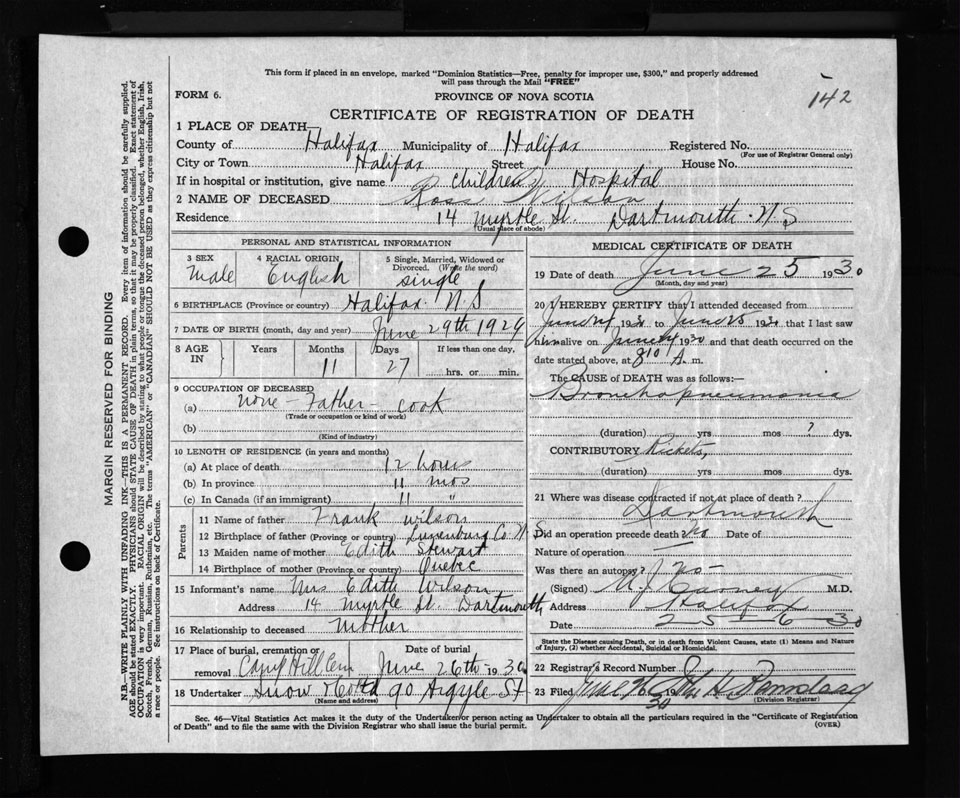 This form if placed in an envelope, marked "Dominion Statistics—Free, penalty for improper use, $300," and properly addressed
will pass through the Mail "FREE"
142
FORM 6.
PROVINCE OF NOVA SCOTIA
CERTIFICATE OF REGISTRATION OF DEATH
1 PLACE OF DEATH—
County of Halifax Municipality of Halifax Registered No.
(For use of Registrar General only)
City or Town Halifax Street House No.
If in hospital or institution, give name Children's Hospital
2 NAME OF DECEASED Ross Wilson
Residence 14 Myrtle St. Dartmouth. N.S
(Usual place of abode)
PERSONAL AND STATISTICAL INFORMATION
3 SEX 4 RACIAL ORIGIN 5 Single, Married, Widowed or
Divorced. (Write the word)
Male English single
6 BIRTHPLACE (Province or country) Halifax. N.S
7 DATE OF BIRTH (month, day and year) June 29th 1929
8 AGE IN Years Months Days If less than one day,
11 27 hrs. or min.
9 OCCUPATION OF DECEASED
(a) none - Father - cook
(Trade or occupation or kind of work)
(b)
(Kind of industry)
10 LENGTH OF RESIDENCE (in years and months)
(a) At place of death 12 hours
(b) In province 11 mos
(c) In Canada (if an immigrant) 11 "
Parents
11 Name of father Frank Wilson
12 Birthplace of father (Province or country) Lunenburg Co. N S
13 Maiden name of mother Edith Stewart
14 Birthplace of mother (Province or country) Quebec
15 Informant's name Mrs Edith Wilson
Address 14 Myrtle St. Dartmouth
16 Relationship to deceased Mother
17 Place of burial, cremation or removal Camp Hill Cem Date of burial June 26th 1930
18 Undertaker Snow & Co Ltd 90 Argyle St
(Name and address)
MEDICAL CERTIFICATE OF DEATH
19 Date of death June 25 1930
(Month, day and year)
20 I HEREBY CERTIFY that I attended deceased from
June 24 1930 to June 25 1930 that I last saw
him alive on June 24 1930 and that death occurred on the
date stated above, at 8 10 A. m.
The CAUSE OF DEATH was as follows:—
Bronchopneumonia
(duration) yrs mos ? dys.
CONTRIBUTORY Rickets,
(duration) yrs. mos. dys.
21 Where was disease contracted if not at place of death?
Dartmouth
Did an operation precede death? No Date of
Nature of operation
Was there an autopsy? No -
(Signed) M.D.
Address Halifax
Date 25-6-30
State the Disease causing Death, or in death from Violent Causes, state (1) Means and Nature
of Injury, (2) whether Accidental, Suicidal or Homicidal.
22 Registrar's Record Number
23 Filed June 1930
(Division Registrar)
Sec. 46—Vital Statistics Act makes it the duty of the Undertaker or person acting as Undertaker to obtain all the particulars required in the "Certificate of Registration
of Death" and to file the same with the Division Registrar who shall issue the burial permit.
(OVER)
MARGIN RESERVED FOR BINDING
N.B.—WRITE PLAINLY, WITH UNFADING INK—THIS IS A PERMANENT RECORD. Every item of information should be carefully supplied.
AGE should be stated EXACTLY. PHYSICIANS should STATE CAUSE OF DEATH in plain terms, so that it may be properly classified. Exact statement of
OCCUPATION is very important. RACIAL ORIGIN will be described by stating to what people or tongue the deceased person belonged, whether English, Irish,
Scotch, French, German, Russian, Ruthenian, etc. The terms "AMERICAN" or "CANADIAN" SHOULD NOT BE USED as they express citizenship but not
a race or people. See instructions on back of Certificate.